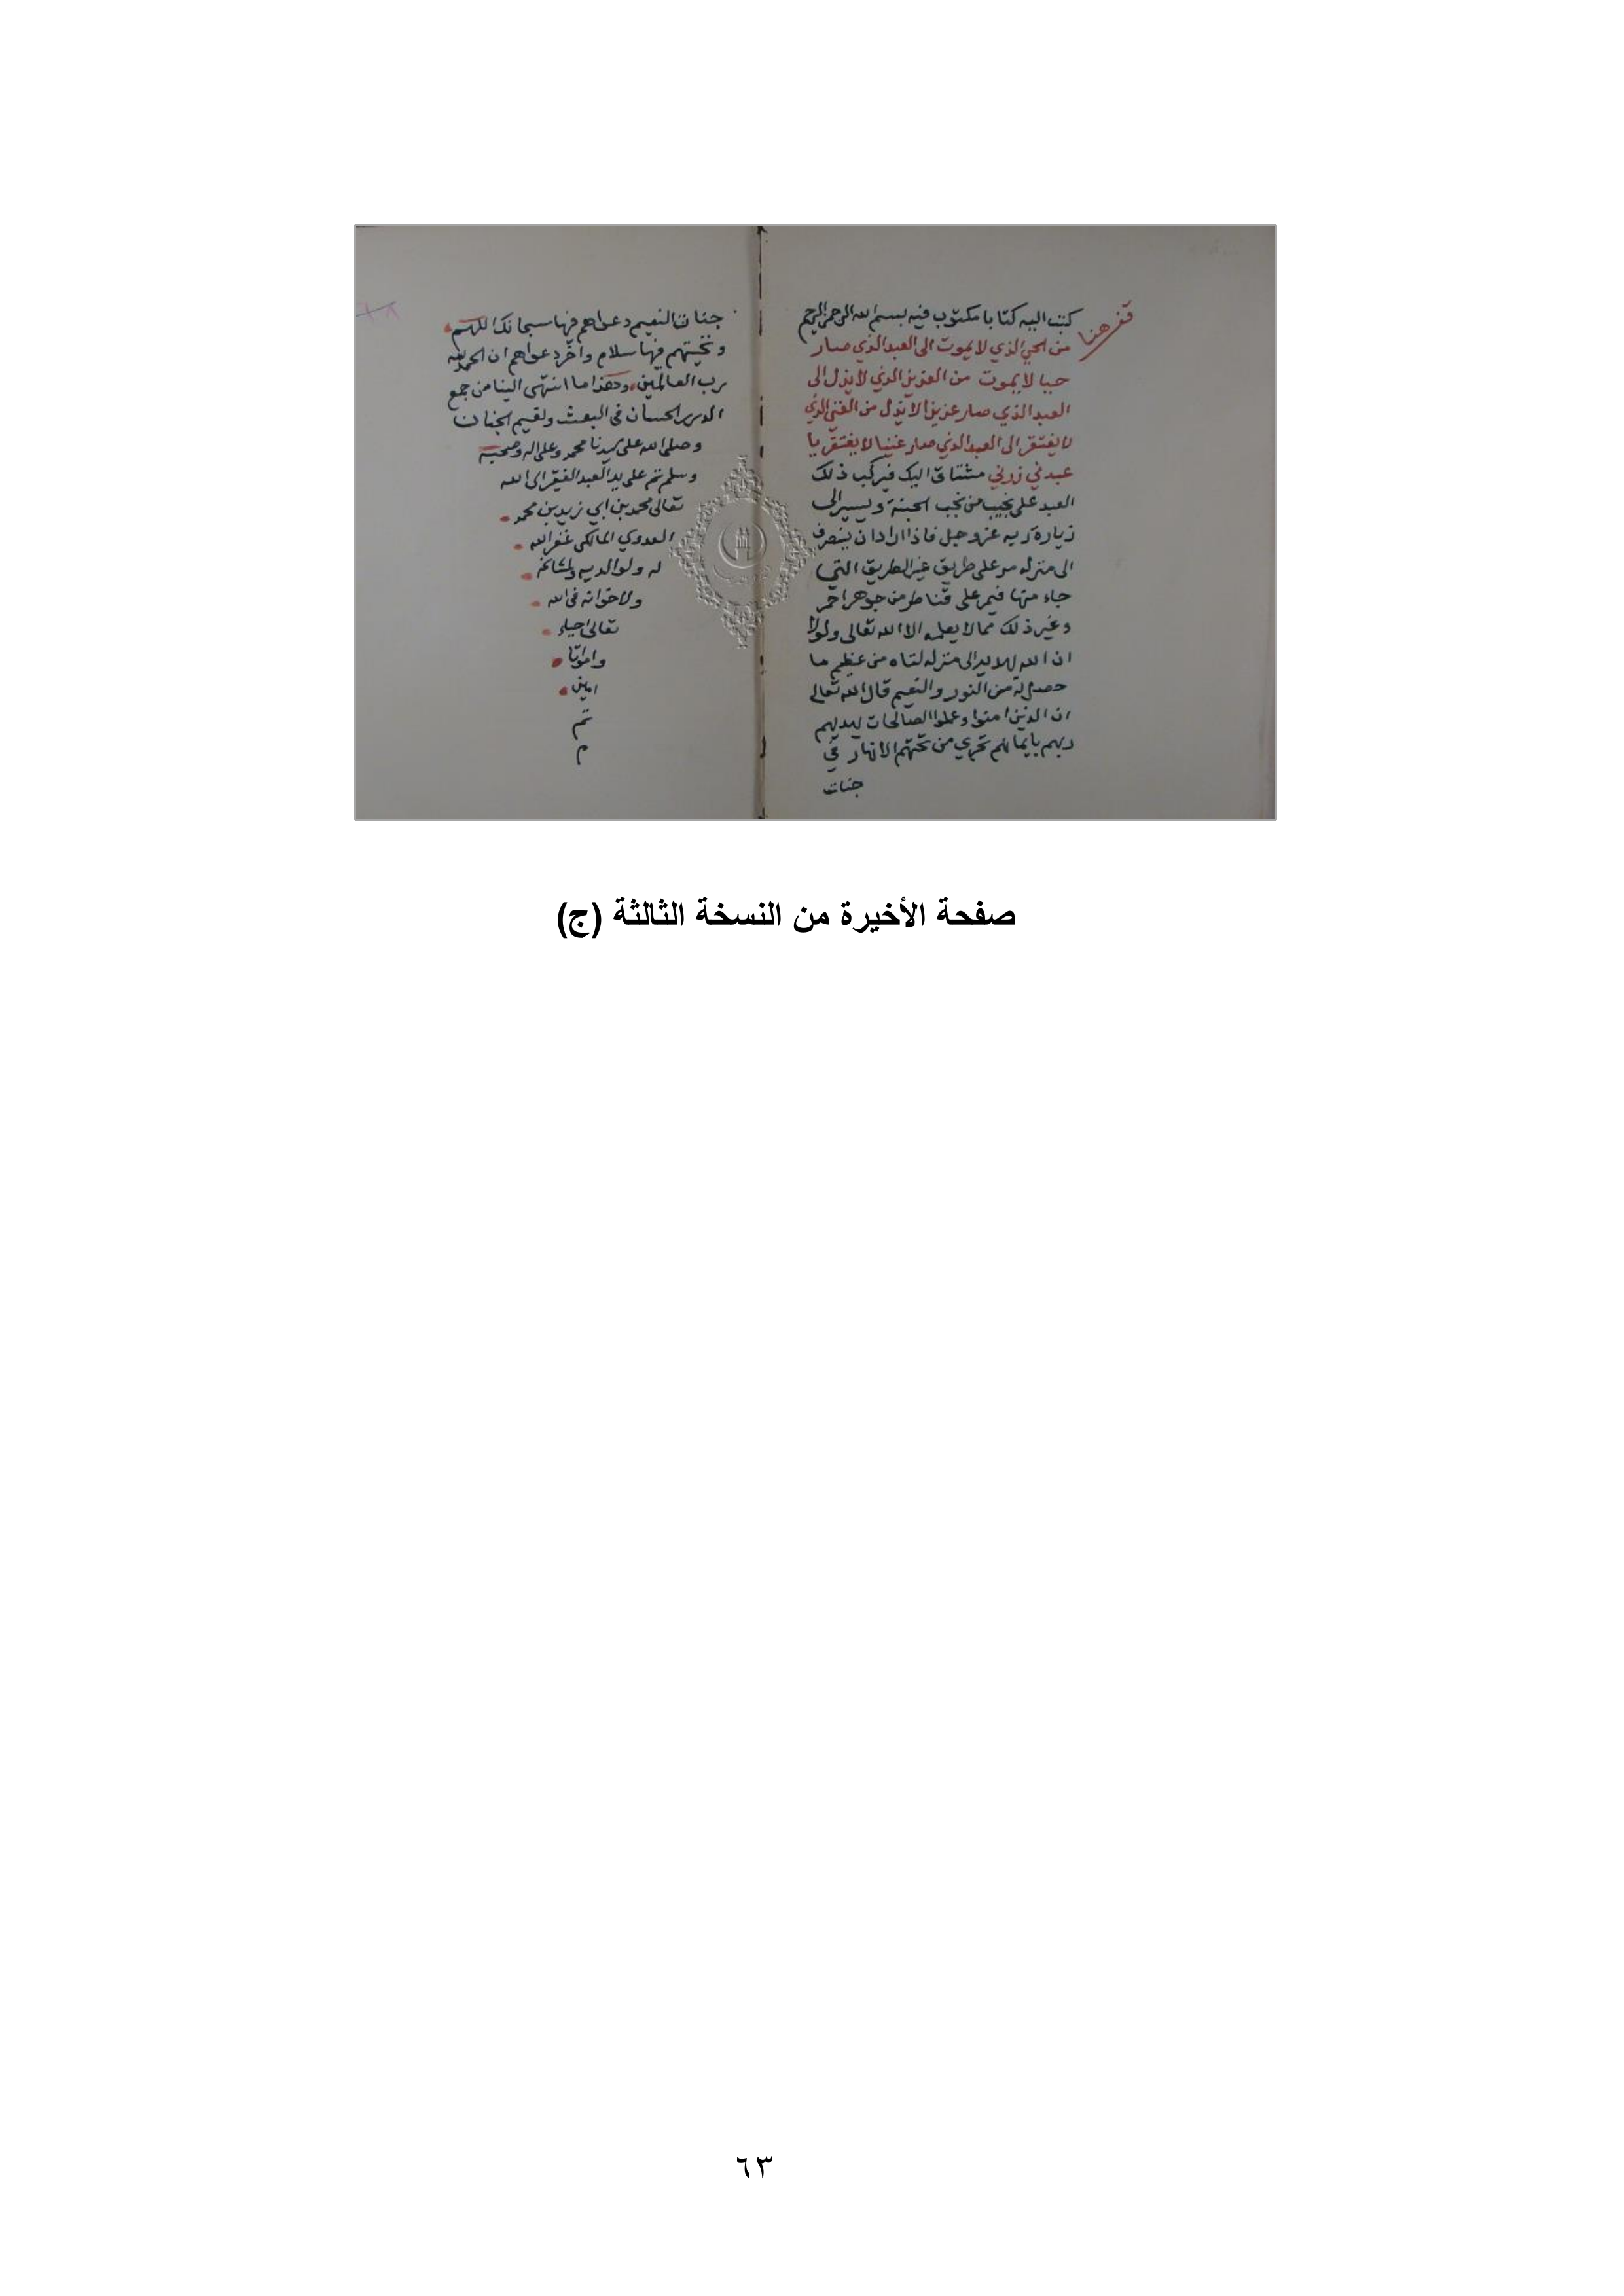 كتب اليه كتابا مكتوب فيه بسم الله الرحمن الرحيم
قف هنا
من الحي الذي لا يموت الى العبد الذي صار
حيا لا يموت من العزيز الذي لا يذل الى
العبد الذي صار عزيزا لا يذل من الغني الذي
لا يفتقر الى العبد الذي صار غنيا لا يفتقر يا
عبدي زرني مشتاق اليك فيركب ذلك
العبد على نجيب من نجب الجنة ويسير الى
زيارة ربه عز وجل فاذا اراد ان ينصرف
الى منزله مر على طريق غير الطريق التي
جاء منها فيمر على قناطر من جوهر احمر
وغير ذلك مما لا يعلمه الا الله تعالى ولولا
ان الله يهديه الى منزله لتاه من عظيم ما
حصل له من النور والنعيم قال الله تعالى
ان الذين امنوا وعملوا الصالحات يهديهم
ربهم بايمانهم تجري من تحتهم الانهار في
جنات
جنات النعيم دعواهم فيها سبحانك اللهم
وتحيتهم فيها سلام واخر دعواهم ان الحمد لله
رب العالمين وهذا ما انتهى الينا من جمع
الدرر الحسان في البعث ونعيم الجنان
وصلى الله على سيدنا محمد وعلى اله وصحبه
وسلم تم على يد العبد الفقير الى الله
تعالى محمد بن ابي زيد بن محمد
العدوي المالكي غفر الله
له ولوالديه ولمشايخه
ولاخوانه في الله
تعالى احياء
وامواتا
امين
تم
م
صفحة الأخيرة من النسخة الثالثة (ج)
٦٣